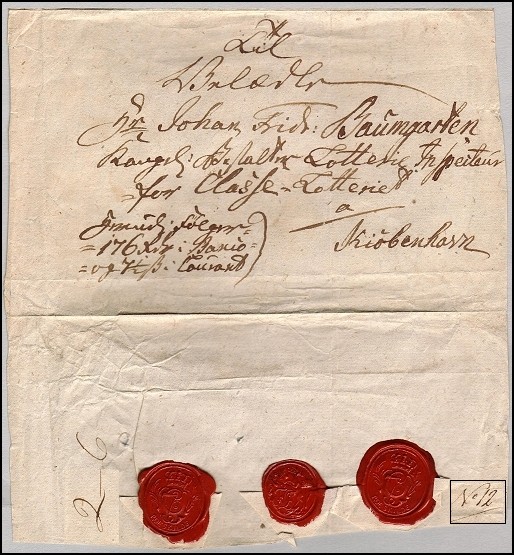 Til
Velædle
Hr Johan Fidr: Baumgarten
Kongel: Bestalter Lotterie Inspecteur
= for Classe = Lotteriet
a
Kiöbenharn
= 176 Rdr:
= og Courant
2-6
No 12